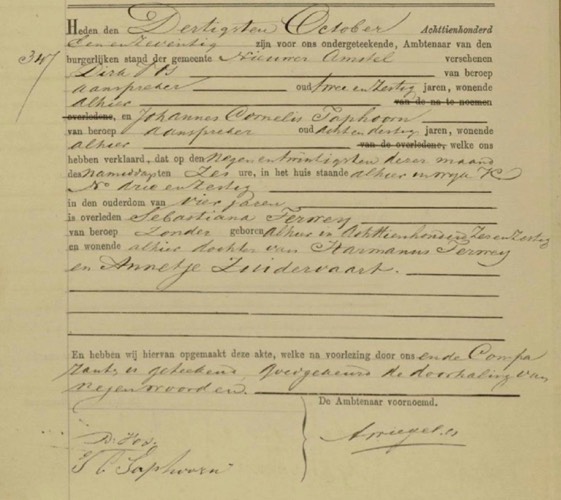 347
Heden den Dertigsten October Achttienhonderd
Een en zeventig zijn voor ons ondergeteekende, Ambtenaar van den
burgerlijken stand der gemeente Nieuwer Amstel verschenen
Dirk Vos van beroep
aanspreker oud twee en zestig jaren, wonende
alhier van de na te noemen
overledene, en Johannes Cornelis Taphoorn
van beroep aanspreker oud acht en dertig jaren, wonende
alhier van de overledene, welke ons
hebben verklaard, dat op den Negen en twintigsten dezer maand
des namiddags ten Zes ure, in het huis staande alhier in wijk K
No drie en zestig
in den ouderdom van vier jaren
is overleden Sebastiana Terwey
van beroep Zonder geboren alhier in Achttienhonderd Zes en Zestig
en wonende alhier dochter van Harmanus Terwey
en Annetje Zuidervaart.
En hebben wij hiervan opgemaakt deze akte, welke na voorlezing door ons en de Compa
ranten is geteekend, goedgekeurd de doorhaling van
negen woorden.
De Ambtenaar voornoemd.
D. Vos
J C Taphoorn